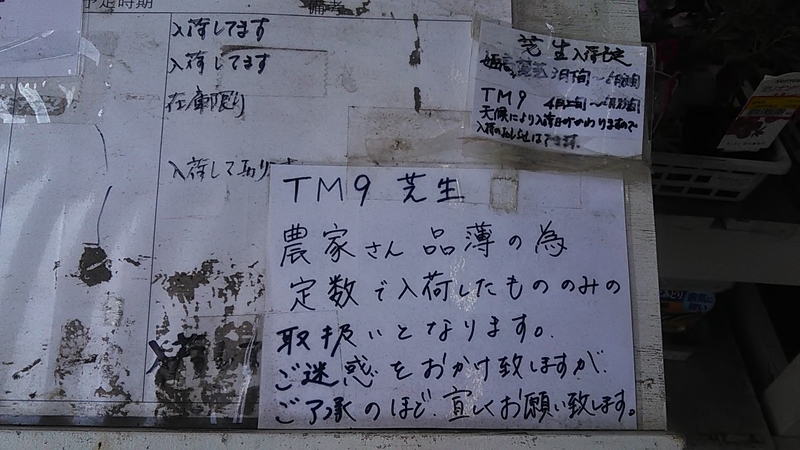 予定時期 備考
入荷してます
入荷してます
在庫限り
入荷して
芝生入荷予定
3月下旬〜6月
TM9 4月上旬〜
天候により入荷日がかわりますので
TM9 芝生
農家さん品薄の為
定数で入荷したもののみの
取扱いとなります。
ご迷惑をおかけ致しますが、
ご了承のほど宜しくお願い致します。